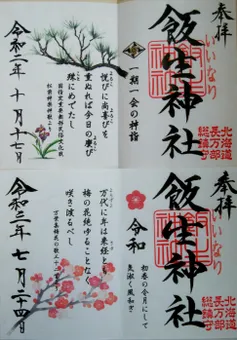 奉拝
いいなり
飯生神社
北海道
長万部
総鎮守
一期一会の神詣
悦びに尚喜びを
重ぬれば今日の慶び
殊にめでたし
令和二年十月十七日
奉拝
いいなり
飯生神社
北海道
長万部
総鎮守
令和
初春の令月にして
気淑く風和ぎ
万代に年は来経とも
梅の花絶ゆることなく
咲き渡るべし
令和二年七月二十四日